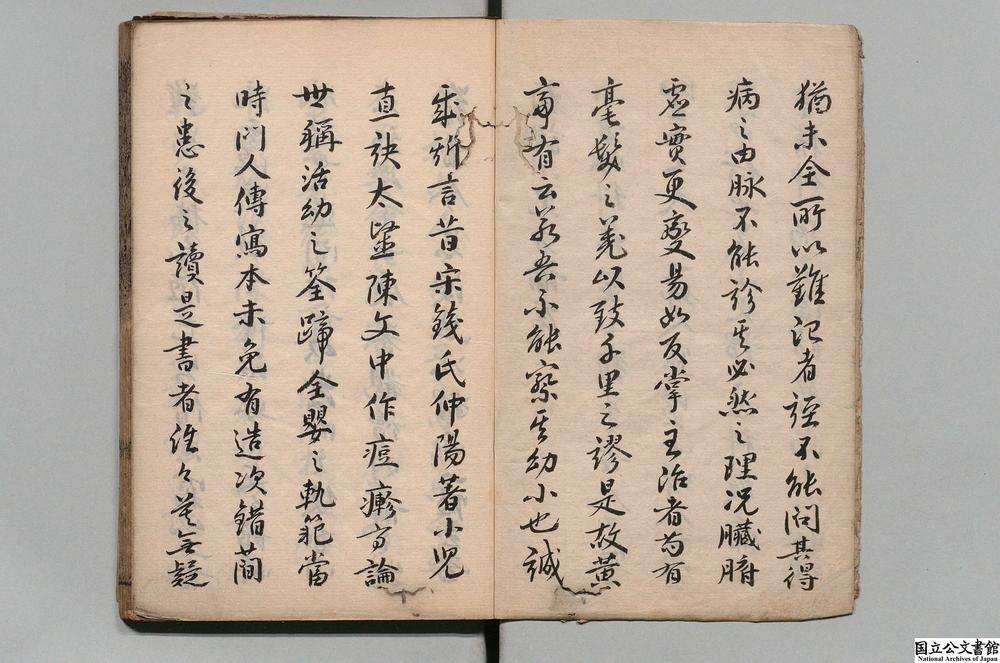 猶未全所以難記者詎不能問其得
病之由脉不能診其必然之理况臓腑
虚實更変易如反掌主治者茍有
毫髮之差以致千里之謬是故黄
帝有云若吾不能察其幼小也誠
哉斯言昔宋錢氏仲陽著小児
直诀太醫陳文中作痘瘮方論
世稱活幼之筌蹄全嬰之軌範當
時門人傳寫本未免有造次錯蕳
之患後之讀是書者往々莫無疑
国立公文書館
National Archives of Japan